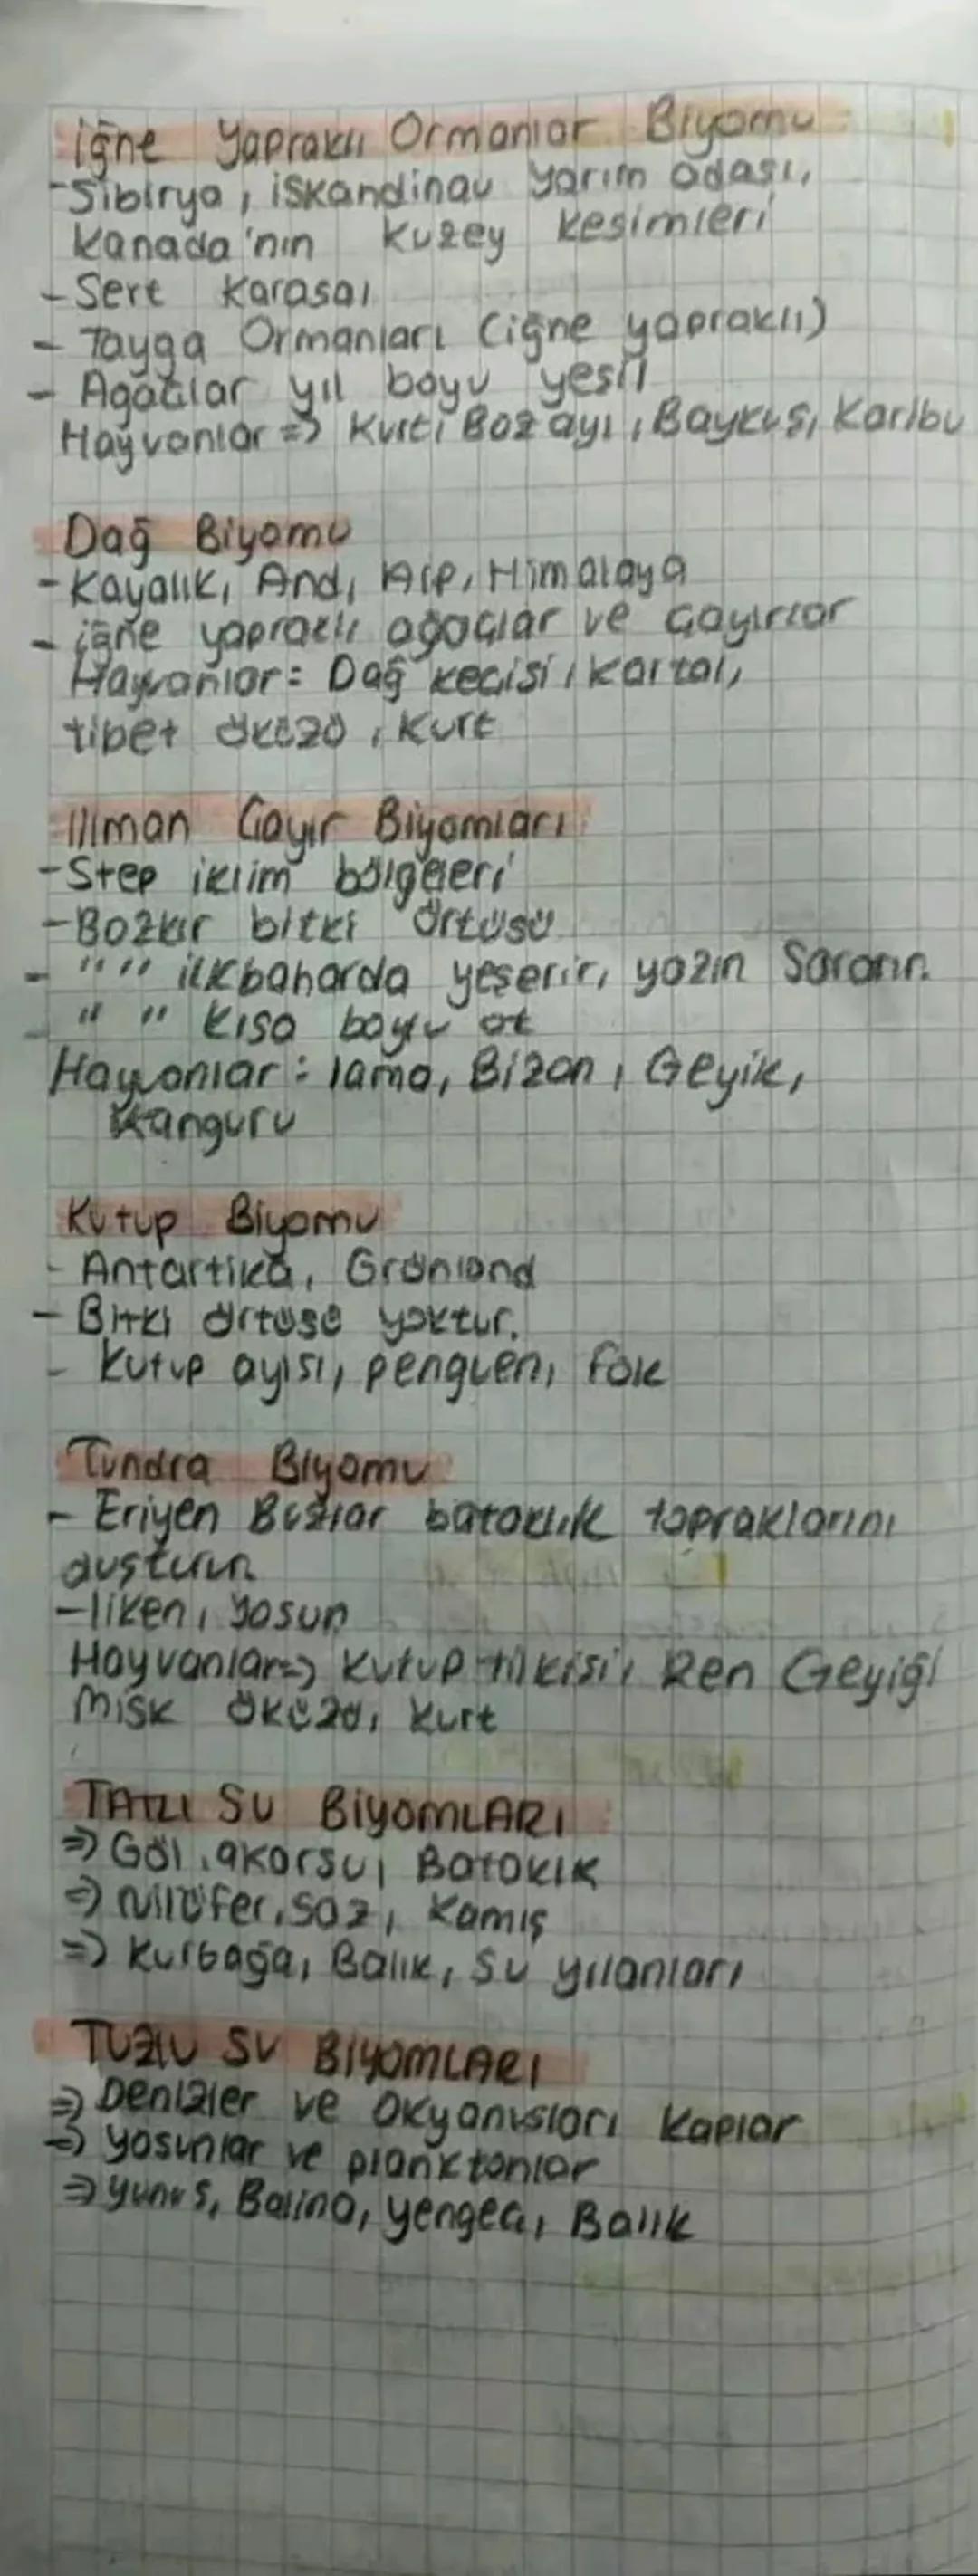 İğne Yapraklı Ormanlar Biyomu
- Sibirya, iskandinav yarım adası,
kanada'nın kuzey kesimleri
- Sert karasal
- Tayga Ormanları (iğne yapraklı)
- Ağaçlar yıl boyu yeşil
Hayvanlar => Kurt, Boz ayı, Baykuş, Karibu
Dağ Biyomu
- Kayalık, And, Alp, Himalaya
- iğne yapraklı ağaçlar ve çayırlar
Hayvanlar: Dağ keçisi, kartal,
tibet öküzü, kurt
Ilıman Çayır Biyomları
- Step iklim bölgeleri
- Bozkır bitki örtüsü
- " " " ilkbaharda yeşerir, yazın Sararır.
- " " kısa boylu ot
Hayvanlar: lama, Bizon, Geyik,
Kanguru
Kutup Biyomu
- Antartika, Grönland
- Bitki örtüsü yoktur.
- Kutup ayısı, penguen, fok
Tundra Biyomu
- Eriyen Buzlar bataklık topraklarını
oluşturur.
- liken, yosun
Hayvanlar => Kutup tilkisi, Ren Geyiği
Misk öküzü, kurt
TATLI SU BiyOMLARI
=> Göl, akarsu, Bataklık
=> Nilüfer, saz, Kamış
=> Kurbağa, Balık, Su yılanları
TUZLU SU BiyOMLARI
=> Denizler ve Okyanusları kaplar
=> yosunlar ve planktonlar
=> yunus, Balina, yengeç, Balık